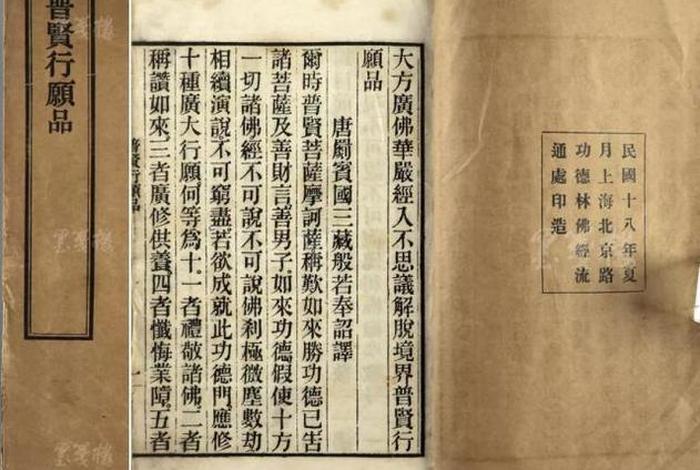 民國十八年夏
月上海北京路
功德林佛經流
通處印造
大方廣佛華嚴經入不思議解脫境界普賢行
願品
唐罽賓國三藏般若奉詔譯
爾時普賢菩薩摩訶薩稱歎如來勝功德已告
諸菩薩及善財言善男子。如來功德假使十方
一切諸佛經不可說不可說佛刹極微塵數劫
相續演說不可窮盡若欲成就此功德門應修
十種廣大行願何等爲十。一者禮敬諸佛。二者
稱讚如來。三者廣修供養。四者懺悔業障。五者
普賢行願品
普賢行願品